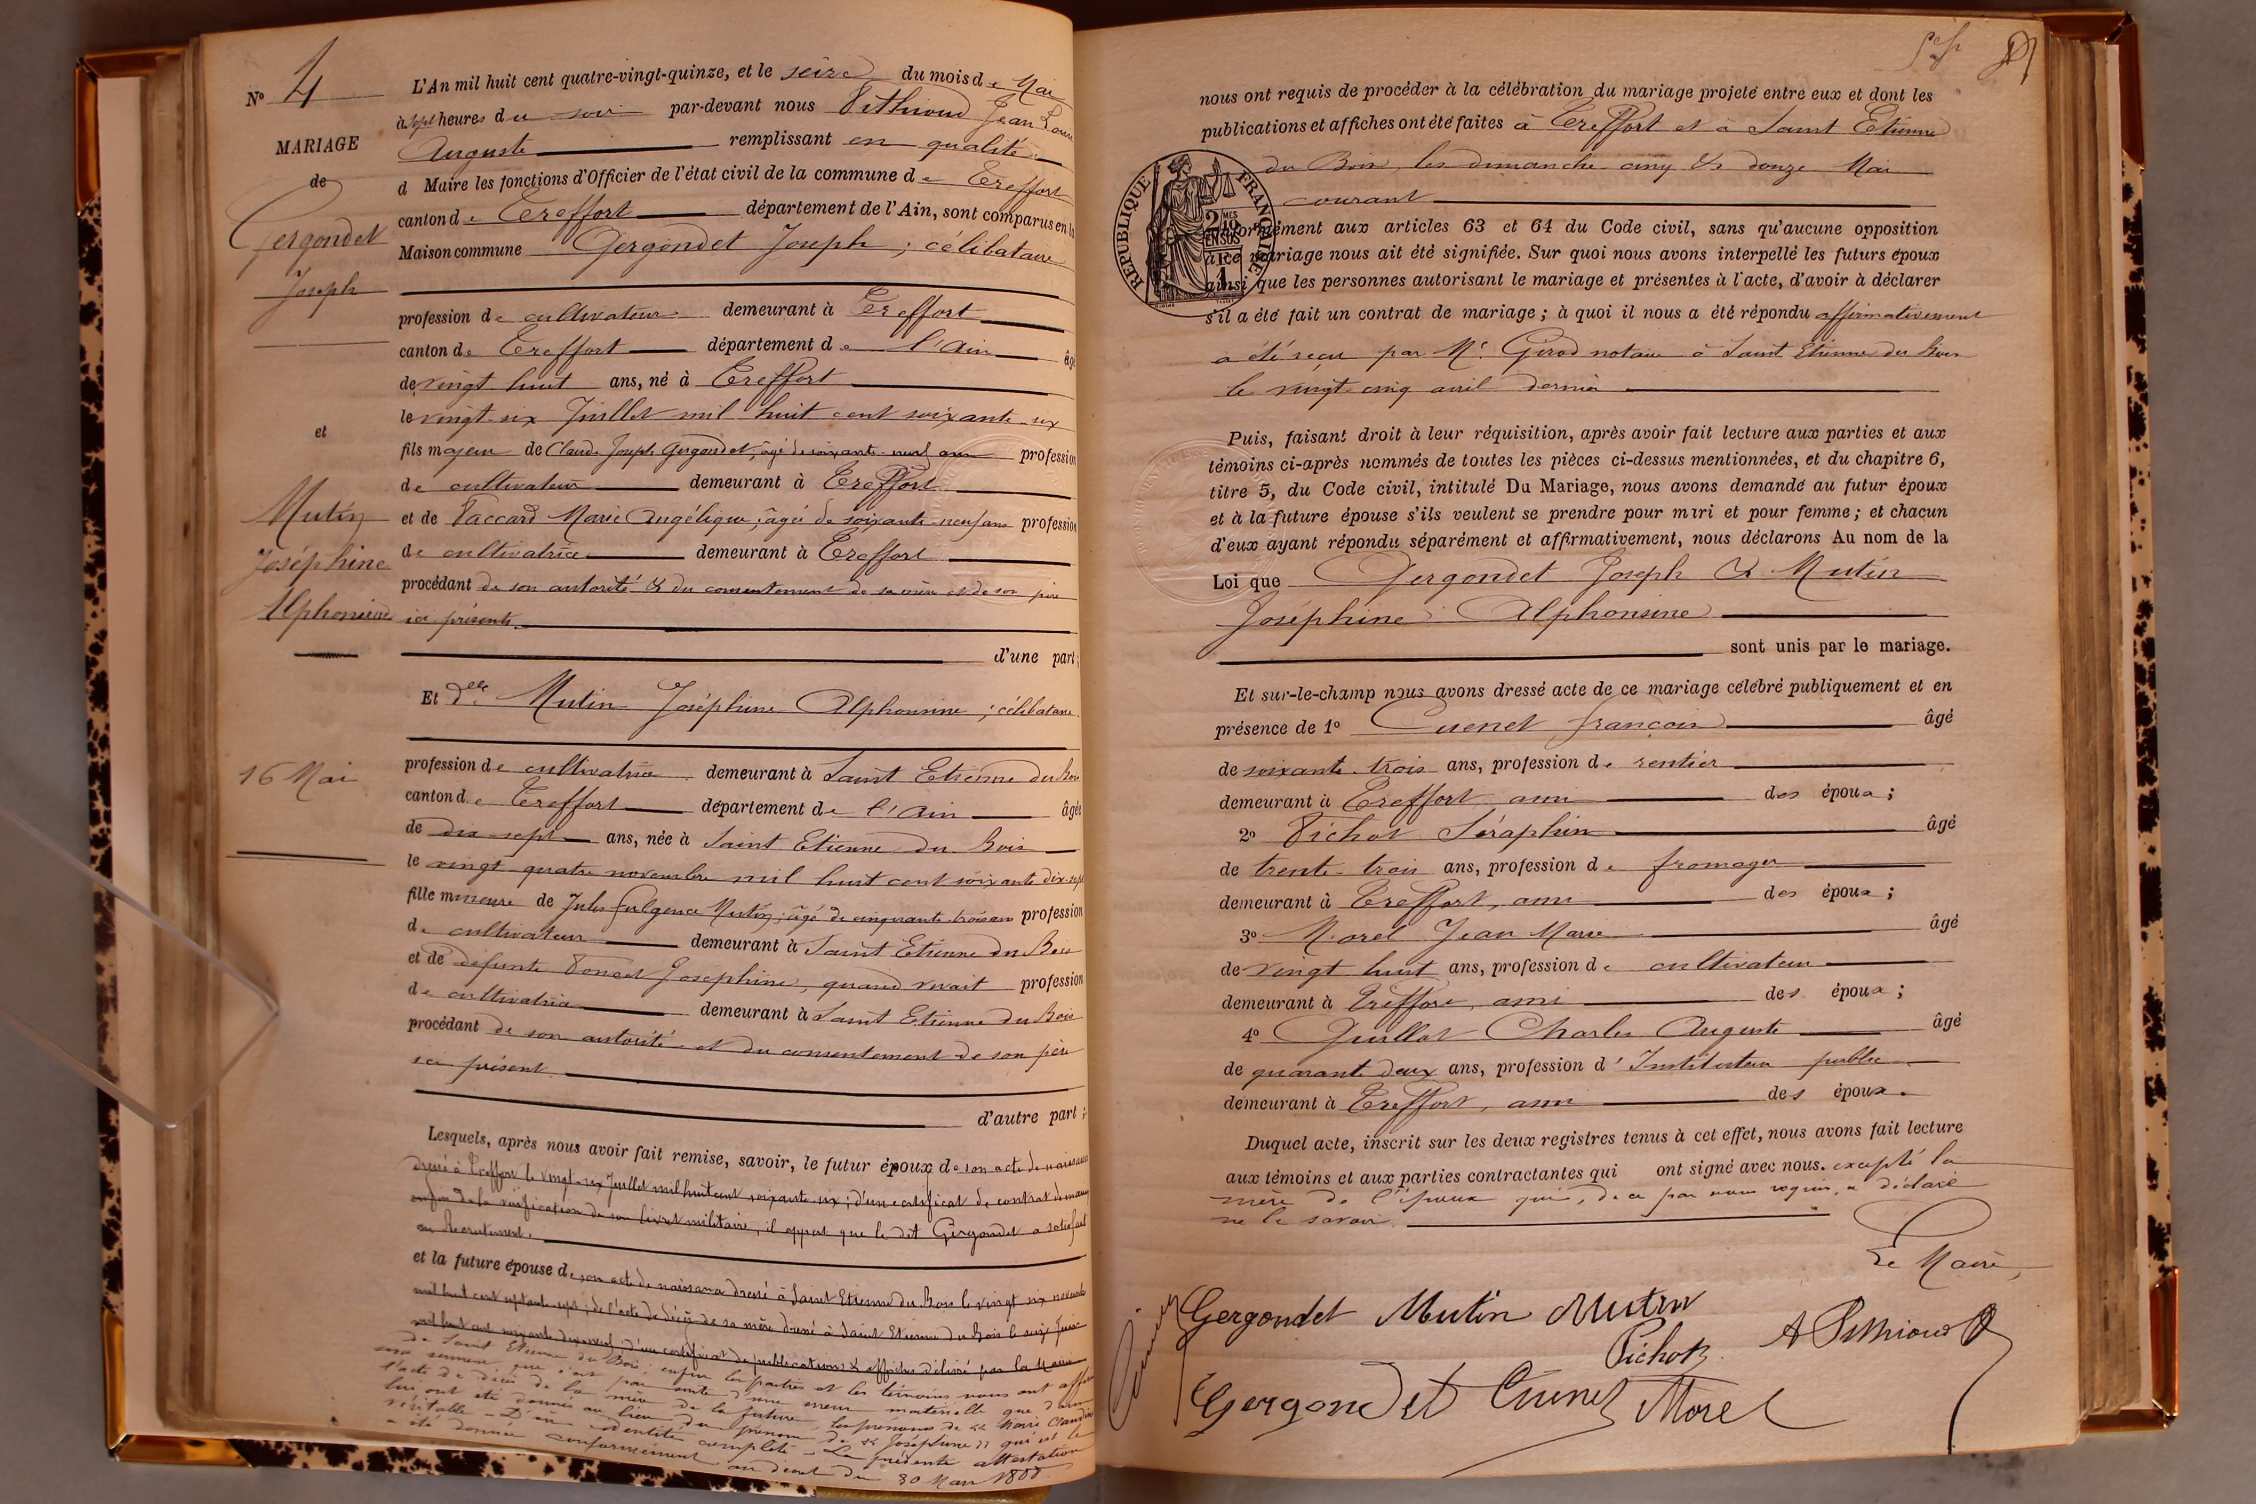 N° 4
MARIAGE
de
Gergondet
Joseph
et
Mutin
Joséphine
Alphonsine
16 Mai
L'An mil huit cent quatre-vingt-quinze, et le seize du mois de Mai
à sept heures du soir par-devant nous Pithioud Jean Louis
Auguste remplissant en qualité
d Maire les fonctions d'Officier de l'état civil de la commune de Treffort
canton de Treffort département de l'Ain, sont comparus en la
Maison commune Gergondet Joseph, célibataire
profession de cultivateur demeurant à Treffort
canton de Treffort département de l'Ain âgé
de vingt huit ans, né à Treffort
le vingt-six Juillet mil huit cent soixante-six
fils majeur de Claude Joseph Gergondet, âgé de soixante-neuf ans profession
de cultivateur demeurant à Treffort
et de Vaccard Marie Angélique, âgé de soixante-neuf ans profession
de cultivatrice demeurant à Treffort
procédant de son autorité & du consentement de sa mère et de son père
ici présents
d'une part;
Et delle Mutin Joséphine Alphonsine, célibataire
profession de cultivatrice demeurant à Saint Etienne du Bois
canton de Treffort département de l'Ain âgée
de dix-sept ans, née à Saint Etienne du Bois
le vingt-quatre novembre mil huit cent soixante dix-sept
fille mineure de Jules Fulgence Mutin, âgé de cinquante-trois ans profession
de cultivateur demeurant à Saint Etienne du Bois
et de défunte Poncet Joséphine, quand vivait profession
de cultivatrice demeurant à Saint Etienne du Bois
procédant de son autorité et du consentement de son père
ici présent
d'autre part;
Lesquels, après nous avoir fait remise, savoir, le futur époux de son acte de naissance
dressé à Treffort le vingt-six Juillet mil huit cent soixante-six; d'un certificat de contrat de mariage
enfin de la vérification de son livret militaire, il appert que le dit Gergondet a satisfait
au Recrutement.
et la future épouse de son acte de naissance dressé à Saint Etienne du Bois le vingt six novembre
mil huit cent septante-sept; de l'acte de décès de sa mère dressé à Saint Etienne du Bois le seize Juin
mil huit cent soixante dix-neuf; d'un certificat de publications & affiches délivré par la Mairie
de Saint Etienne du Bois; enfin les parties et les témoins nous ont affirmé
sous serment que c'est par suite d'une erreur matérielle que dans
l'acte de décès de la mère de la future, les prénoms de « Marie Claudine
lui ont été donnés au lieu du prénom de « Joséphine » qui est le
véritable. D'où identité complète. La présente attestation
a été donnée conformément au décret du 30 Mars 1808.
nous ont requis de procéder à la célébration du mariage projeté entre eux et dont les
publications et affiches ont été faites à Treffort et à Saint Etienne
du Bois, les dimanche cinq & douze Mai
courant
RÉPUBLIQUE FRANÇAISE
conformément aux articles 63 et 64 du Code civil, sans qu'aucune opposition
à ce mariage nous ait été signifiée. Sur quoi nous avons interpellé les futurs époux
ainsi que les personnes autorisant le mariage et présentes à l'acte, d'avoir à déclarer
s'il a été fait un contrat de mariage; à quoi il nous a été répondu affirmativement
a été reçu par Me Girod notaire à Saint Etienne du Bois
le vingt-cinq avril dernier
Puis, faisant droit à leur réquisition, après avoir fait lecture aux parties et aux
témoins ci-après nommés de toutes les pièces ci-dessus mentionnées, et du chapitre 6,
titre 5, du Code civil, intitulé Du Mariage, nous avons demandé au futur époux
et à la future épouse s'ils veulent se prendre pour mari et pour femme; et chacun
d'eux ayant répondu séparément et affirmativement, nous déclarons Au nom de la
Loi que Gergondet Joseph & Mutin
Joséphine Alphonsine
sont unis par le mariage.
Et sur-le-champ nous avons dressé acte de ce mariage célébré publiquement et en
présence de 1° Cuenet François âgé
de soixante-trois ans, profession de rentier
demeurant à Treffort, ami des époux;
2° Pichot Séraphin âgé
de trente-trois ans, profession de fromager
demeurant à Treffort, ami des époux;
3° Morel Jean Marie âgé
de vingt huit ans, profession de cultivateur
demeurant à Treffort, ami des époux;
4° Guillot Charles Auguste âgé
de quarante deux ans, profession d'Instituteur public
demeurant à Treffort, ami des époux.
Duquel acte, inscrit sur les deux registres tenus à cet effet, nous avons fait lecture
aux témoins et aux parties contractantes qui ont signé avec nous. excepté la
mère de l'époux qui, de ce par nous requise, a déclaré
ne le savoir.
Le Maire,
Gergondet Mutin Mutin
Pichot A Pithioud
Gergondet Cuenet Morel